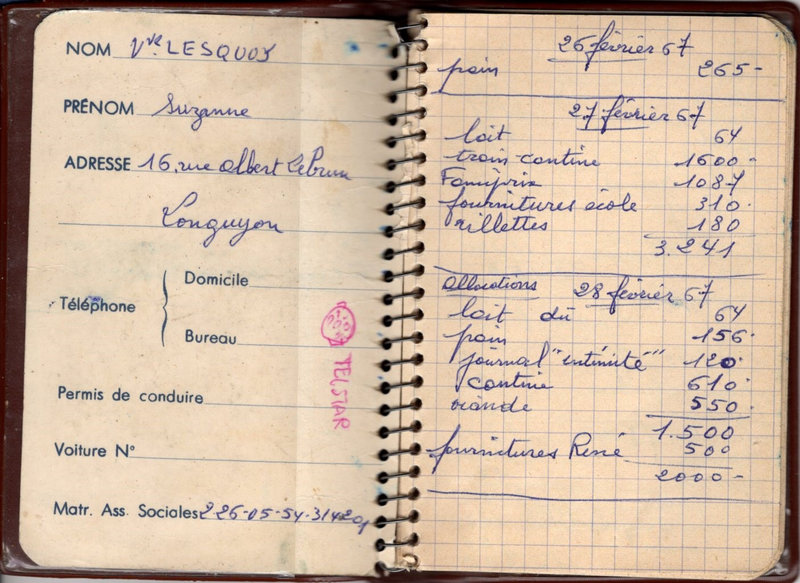 NOM Vve LESQUOY
PRÉNOM Suzanne
ADRESSE 16, rue Albert Lebrun
Longuyon
Téléphone
Domicile
Bureau
Permis de conduire
Voiture N°
Matr. Ass. Sociales 2.26-05-54-314201
TELSTAR
26 février 67
pain 265-
27 février 67
lait 64
train-cantine 1600-
Famiprix 1087
fournitures école 310
rillettes 180
3.241
allocations 28 février 67
lait dû 64
pain 156
journal "intimité" 120
cantine 610
viande 550
1.500
fournitures René 500
2000-